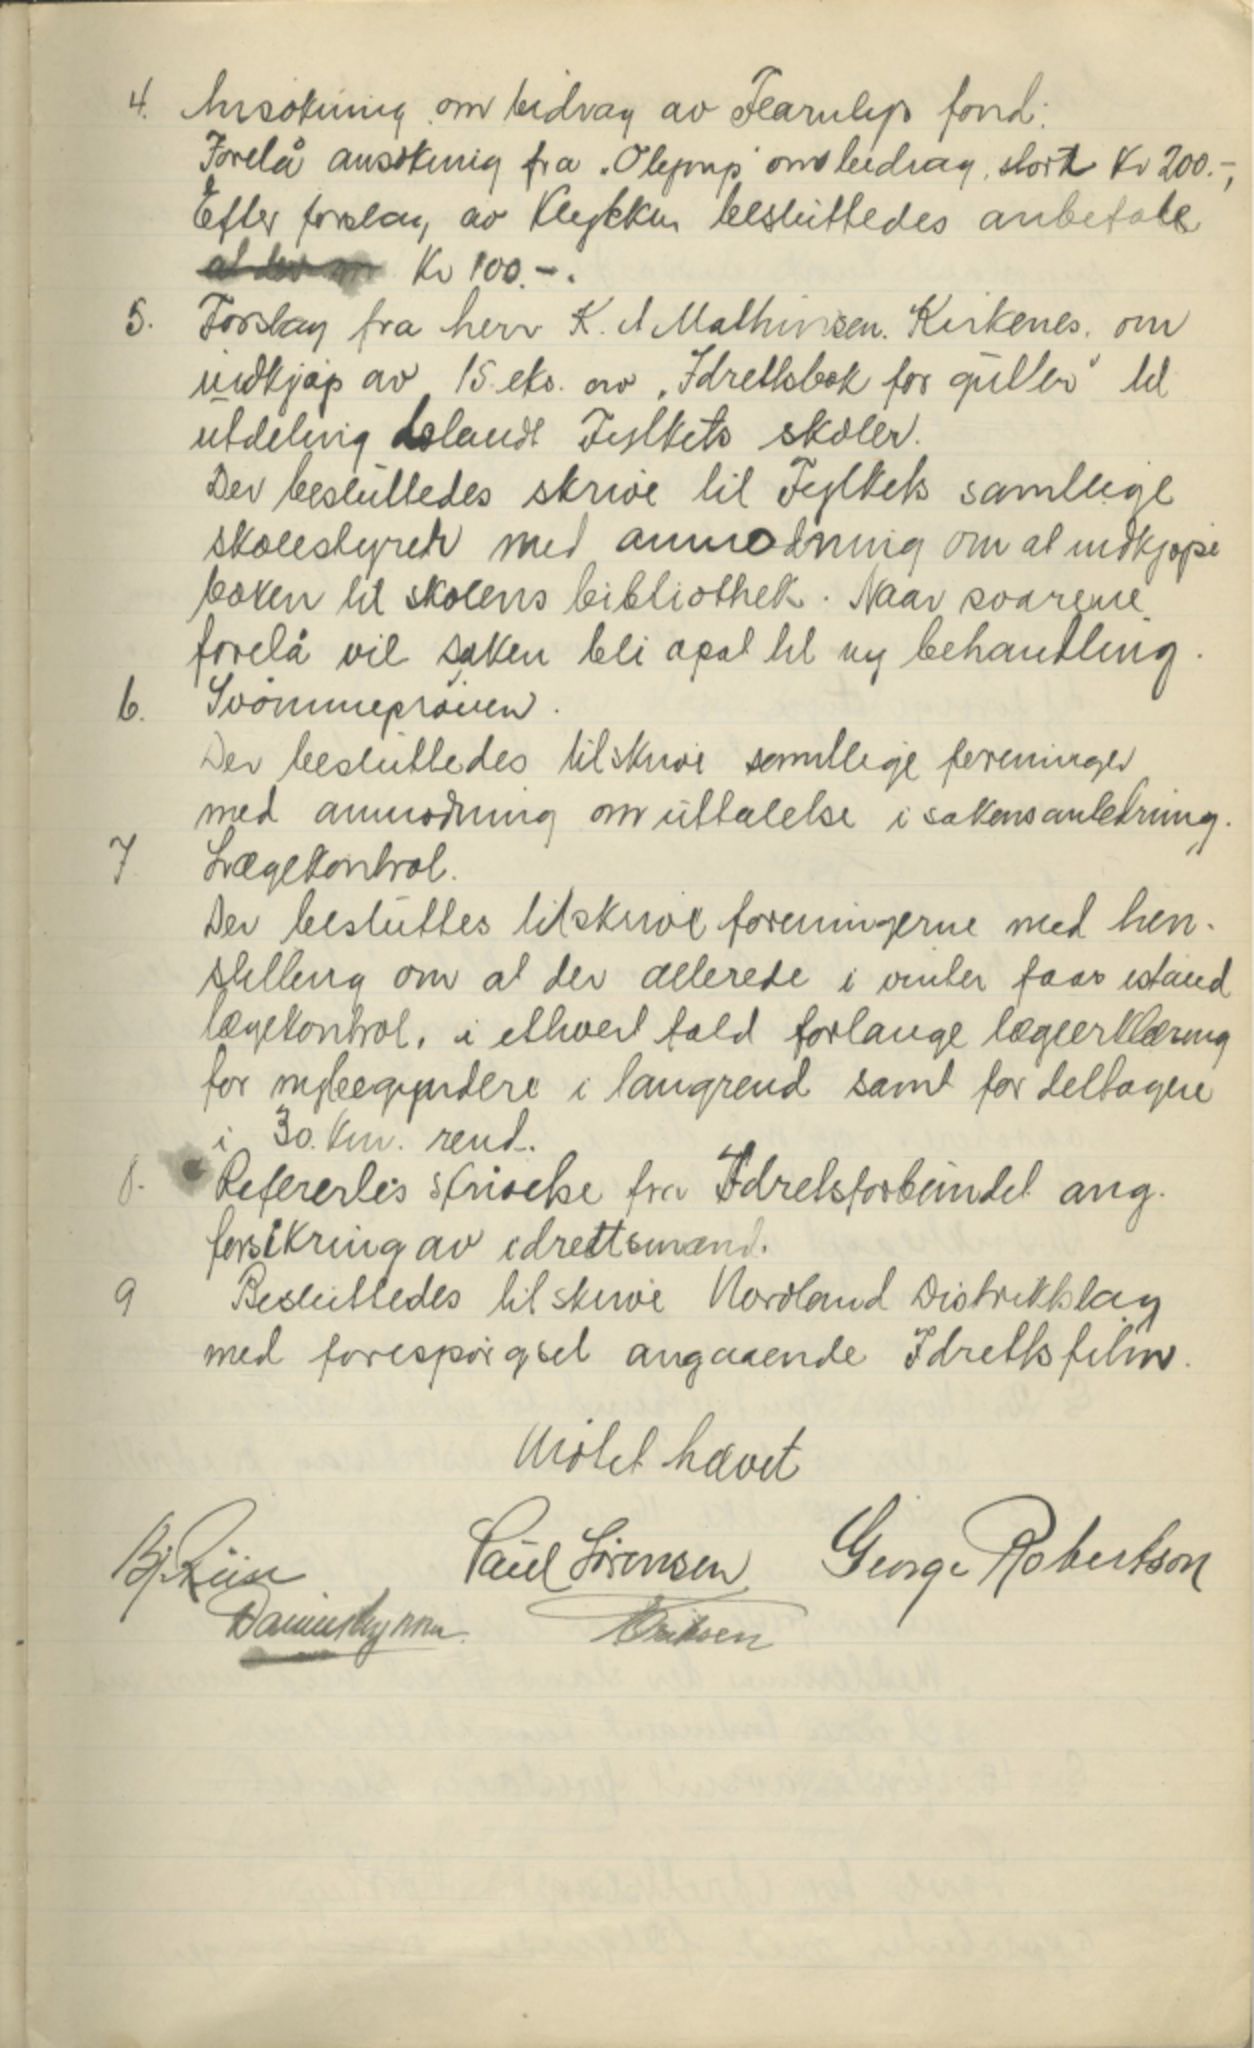 4. Ansökning om bidrag av Fearnleys fond.
Forelå ansökning fra "Olymp" om bidrag, stort Kr 200.-,
Efter forslag av Klykken besluttedes anbefale
Kr 100.-.
5. Forslag fra herr K. A Mathiesen. Kirkenes. om
indkjøp av 15 eks. av "Idrettsbok for gutter" til
utdeling blandt Fylkets skoler.
Der besluttedes skrive til Fylkets samtlige
skolestyrer med anmodning om at indkjøpe
boken til skolens bibliothek. Naar svarene
forelå vil saken bli opat til ny behandling.
6. Svömmepröven.
Der besluttedes tilskrive samtlige foreninger
med anmodning om uttalelse i sakens anledning.
7 Lægekontrol.
Der besluttes tilskrive foreningerne med hen-
stilling om at der allerede i vinter faas istand
lægekontrol, i ethvert fald forlange lægeerklæring
for nybegyndere i langrend samt for deltagere
i 30. km. rend.
8. Refererles skrivelse fra Idretsforbundet ang.
forsikring av idrettsmænd.
9 Besluttedes tilskrive Nordland Distriktslag
med forespørgsel angaaende Idrettsfilm.
Mötet hævet
Paul Sörensen George Robertson
Eriksen